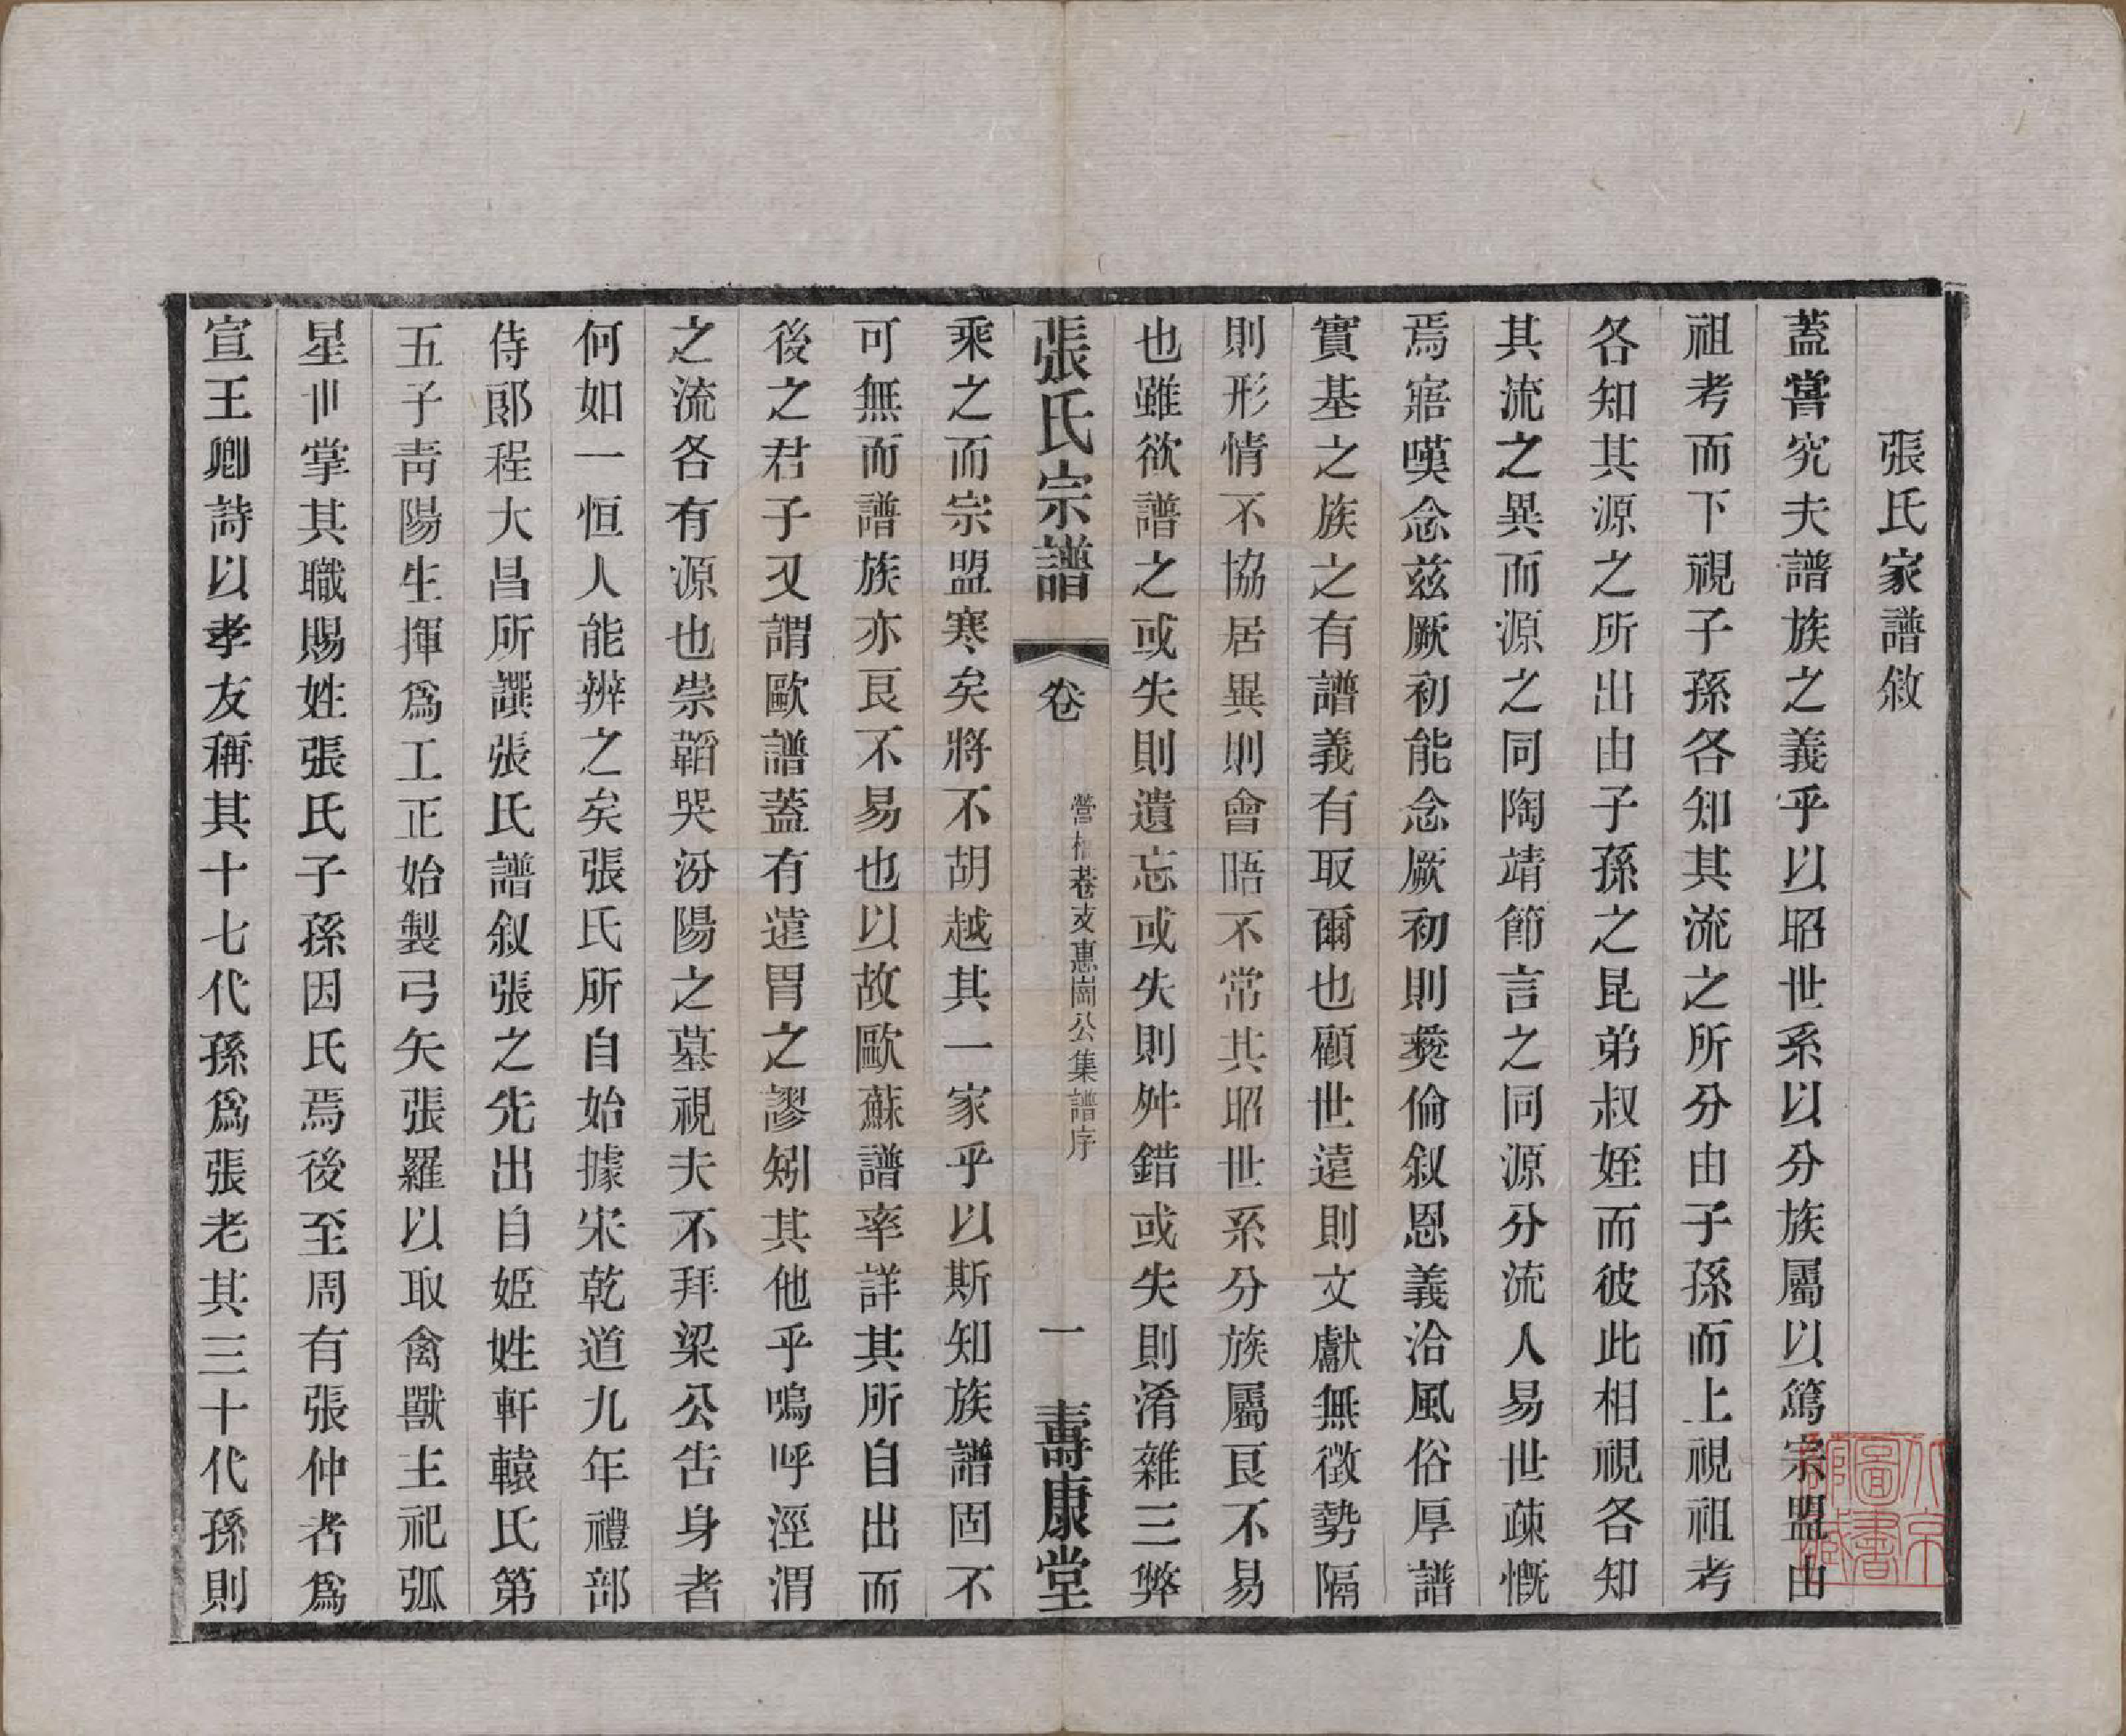 張氏家譜敘
蓋嘗究夫譜族之義乎以昭世系以分族屬以篤宗盟由
祖考而下視子孫各知其流之所分由子孫而上視祖考
各知其源之所出由子孫之昆弟叔姪而彼此相視各知
其流之異而源之同陶靖節言之同源分流人易世疎慨
焉寤嘆念兹厥初能念厥初則彜倫叙恩義洽風俗厚譜
實基之族之有譜義有取爾也顧世遠則文獻無徵勢隔
則形情不協居異則會晤不常其昭世系分族屬艮不易
也雖欲譜之或失則遺忘或失則舛錯或失則淆雜三弊
張氏宗譜 卷 巷支惠崗公集譜序 一 壽康堂
乘之而宗盟寒矣將不胡越其一家乎以斯知族譜固不
可無而譜族亦艮不易也以故歐蘇譜率詳其所自出而
後之君子又謂歐譜蓋有遠胃之謬矧其他乎嗚呼涇渭
之流各有源也崇韜哭汾陽之墓視夫不拜梁公告身者
何如一恒人能辨之矣張氏所自始據宋乾道九年禮部
侍郎程大昌所譔張氏譜叙張之先出自姬姓軒轅氏第
五子靑陽生揮爲工正始製弓矢張羅以取禽獸主祀弧
星世掌其職賜姓張氏子孫因氏焉後至周有張仲者爲
宣王卿詩以孝友稱其十七代孫爲張老其三十代孫則